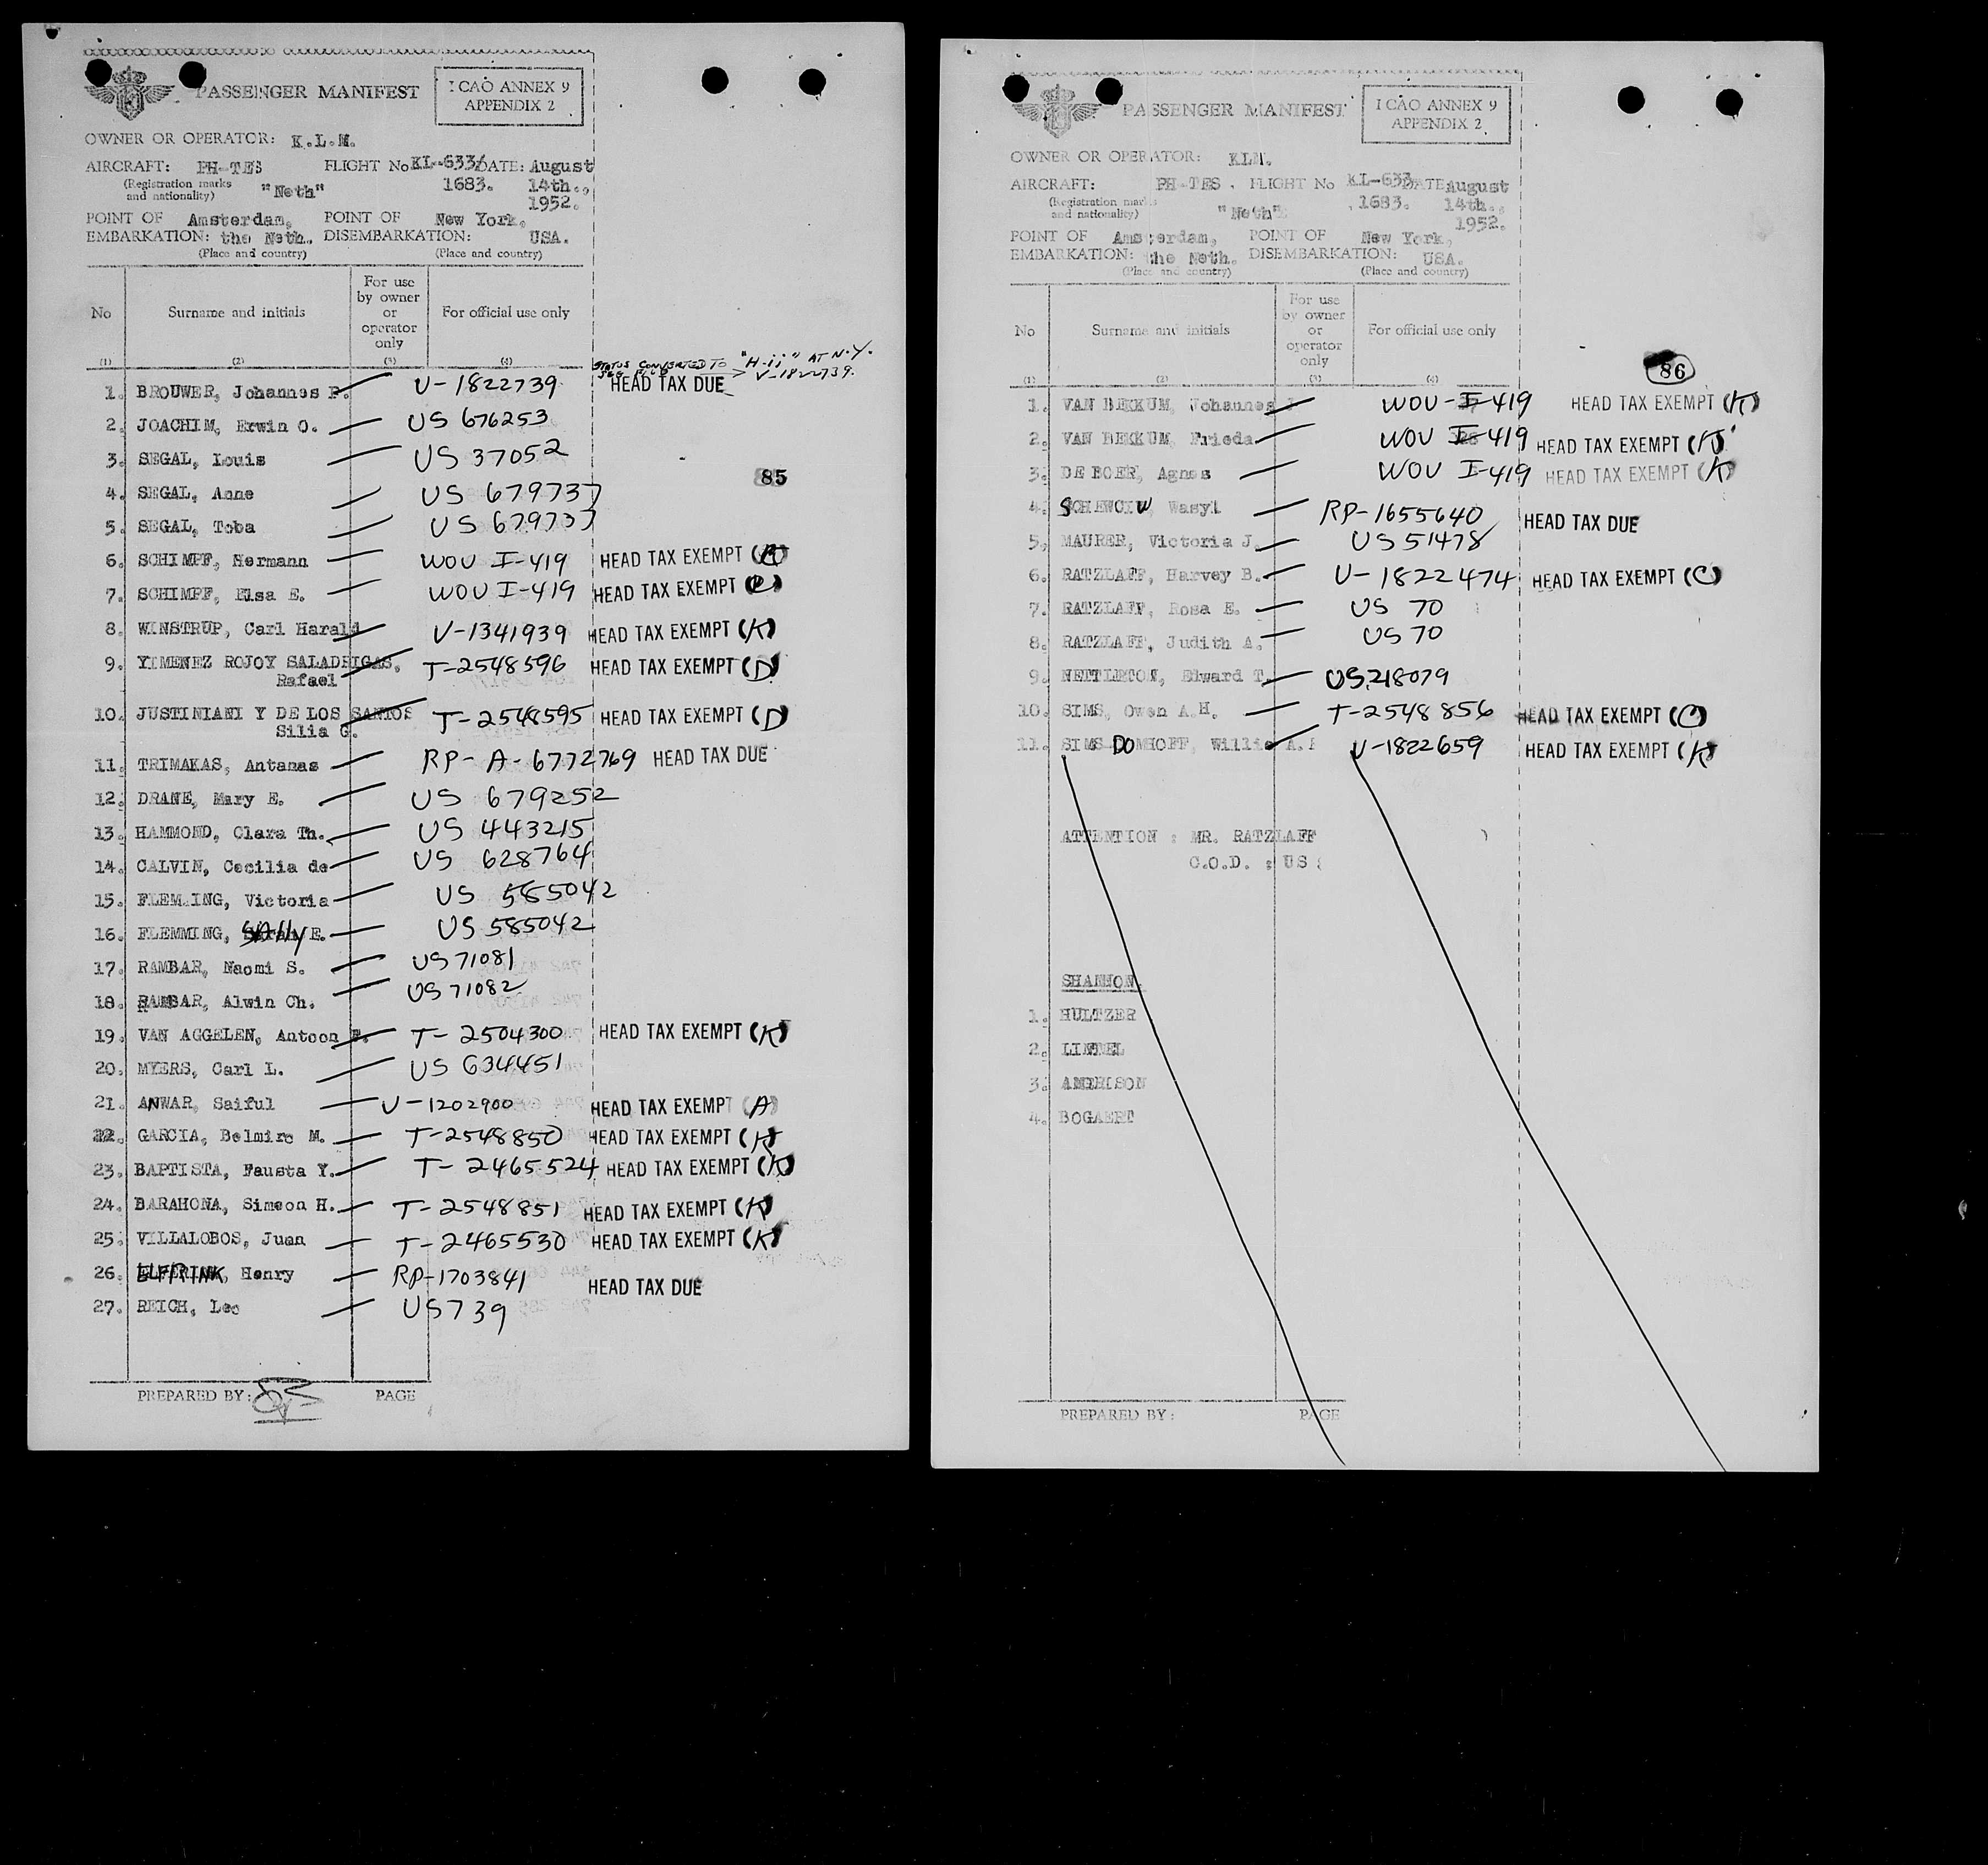 PASSENGER MANIFEST
I CAO ANNEX 9
APPENDIX 2
OWNER OR OPERATOR: K.L.M.
AIRCRAFT: PH-TES FLIGHT No KL-633/ DATE: August
(Registration marks and nationality) "Neth" 1683. 14th.,
1952.
POINT OF Amsterdam, POINT OF New York,
EMBARKATION: the Neth. DISEMBARKATION: USA.
(Place and country) (Place and country)
No Surname and initials For use by owner or operator only For official use only
(1) (2) (3) (4)
STATUS CONVERTED TO "H-ii" AT N.Y.
V-1822739.
1. BROUWER, Johannes P. V-1822739 HEAD TAX DUE
2. JOACHIM, Erwin O. US 676253
3. SEGAL, Louis US 37052
85
4. SEGAL, Anne US 679737
5. SEGAL, Toba US 679737
6. SCHIMPF, Hermann WOV I-419 HEAD TAX EXEMPT
7. SCHIMPF, Elsa E. WOV I-419 HEAD TAX EXEMPT
8. WINSTRUP, Carl Harald V-1341939 HEAD TAX EXEMPT (K)
9. YIMENEZ ROJOY SALADRIGAS, T-2548596 HEAD TAX EXEMPT (D)
Rafael
10. JUSTINIANI Y DE LOS SANTOS T-2548595 HEAD TAX EXEMPT (D)
Silia G.
11. TRIMAKAS, Antanas RP-A-6772769 HEAD TAX DUE
12. DRANE, Mary E. US 679252
13. HAMMOND, Clara Th. US 443215
14. CALVIN, Cecilia de US 628764
15. FLEMING, Victoria US 585042
16. FLEMMING, SAlly E. US 585042
17. RAMBAR, Naomi S. US 71081
18. RAMBAR, Alwin Ch. US 71082
19. VAN AGGELEN, Antoon F. T-2504300 HEAD TAX EXEMPT (K)
20. MYERS, Carl L. US 634451
21. ANWAR, Saiful V-1202900 HEAD TAX EXEMPT (A)
22. GARCIA, Belmiro M. T-2548850 HEAD TAX EXEMPT (K)
23. BAPTISTA, Fausta Y. T-2465524 HEAD TAX EXEMPT (K)
24. BARAHONA, Simeon H. T-2548851 HEAD TAX EXEMPT (K)
25. VILLALOBOS, Juan T-2465530 HEAD TAX EXEMPT (K)
26. ELFRINK, Henry RP-1703841 HEAD TAX DUE
27. REICH, Leo US 739
PREPARED BY: PAGE
PASSENGER MANIFEST
I CAO ANNEX 9
APPENDIX 2
OWNER OR OPERATOR: KLM.
AIRCRAFT: PH-TES. FLIGHT No KL-633 DATE August
(Registration marks and nationality) "Neth" 1683. 14th.,
1952.
POINT OF Amsterdam, POINT OF New York,
EMBARKATION: the Neth. DISEMBARKATION: USA.
(Place and country) (Place and country)
No Surname and initials For use by owner or operator only For official use only
86
(1) (2) (3) (4)
1. VAN BEKKUM, Johannes J WOV-I-419 HEAD TAX EXEMPT (K)
2. VAN BEKKUM, Frieda WOV I-419 HEAD TAX EXEMPT (K)
3. DE BOER, Agnes WOV I-419 HEAD TAX EXEMPT (K)
4. SCHEWCIW, Wasyl RP-1655640 HEAD TAX DUE
5. MAURER, Victoria J. US 51478
6. RATZLAFF, Harvey B. V-1822474 HEAD TAX EXEMPT (C)
7. RATZLAFF, Rosa E. US 70
8. RATZLAFF, Judith A. US 70
9. NETTLETON, Edward T. US 218079
10. SIMS, Owen A.H. T-2548856 HEAD TAX EXEMPT (C)
11. SIMS DOMHOFF, Willie A. V-1822659 HEAD TAX EXEMPT (K)
ATTENTION : MR. RATZLAFF
C.O.D. : US
SHANNON.
1. HULTZER
2. LINDEL
3. ANDERSON
4. BOGAERT
PREPARED BY: PAGE